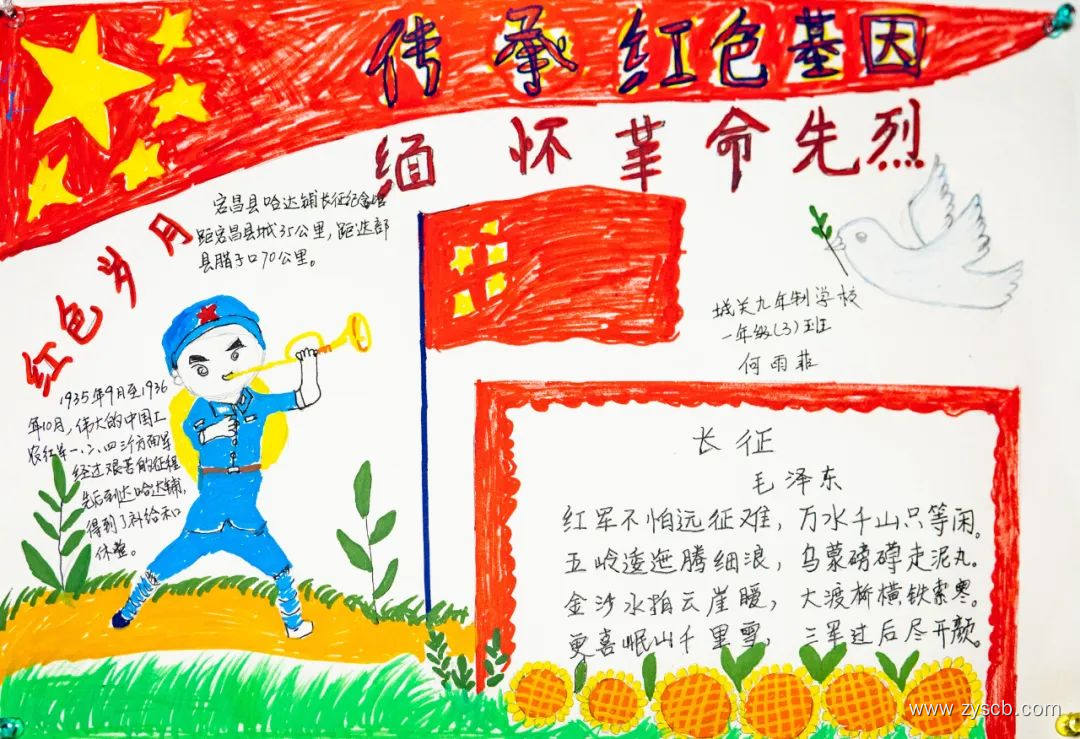 传承红色基因
缅怀革命先烈
红色岁月
宕昌县哈达铺长征纪念馆
距宕昌县城35公里,距迭部
县腊子口70公里。
1935年9月至1936
年10月,伟大的中国工
农红军一、二、四三个方面军
经过艰苦的征程
先后到达哈达铺,
得到了补给和
休整。
城关九年制学校
一年级(3)班
何雨菲
长征
毛泽东
红军不怕远征难,万水千山只等闲。
五岭逶迤腾细浪,乌蒙磅礴走泥丸。
金沙水拍云崖暖,大渡桥横铁索寒。
更喜岷山千里雪,三军过后尽开颜。
www.zyscb.com